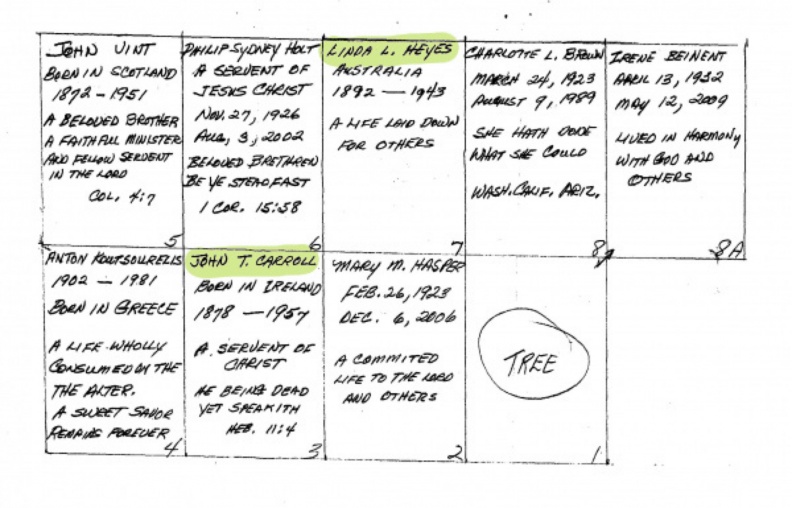 JOHN VINT
BORN IN SCOTLAND
1872 - 1951
A BELOVED BROTHER
A FAITHFUL MINISTER
AND FELLOW SERVENT
IN THE LORD
COL. 4:7
5
PHILIP SYDNEY HOLT
A SERVENT OF
JESUS CHRIST
NOV. 27, 1926
AUG, 3, 2002
BELOVED BRETHREN
BE YE STEADFAST
1 COR. 15:58
6
LINDA L. HEYES
AUSTRALIA
1892 — 1943
A LIFE LAID DOWN
FOR OTHERS
7
CHARLOTTE L. BROWN
MARCH 24, 1923
AUGUST 9, 1989
SHE HATH DONE
WHAT SHE COULD
WASH. CALIF. ARIZ.
8
IRENE BEINENT
APRIL 13, 1932
MAY 12, 2009
LIVED IN HARMONY
WITH GOD AND
OTHERS
8A
ANTON KOUTSOURELIS
1902 — 1981
BORN IN GREECE
A LIFE WHOLLY
CONSUMED ON THE
THE ALTER.
A SWEET SAVOR
REMAINS FOREVER
4
JOHN T. CARROLL
BORN IN IRELAND
1878 — 1957
A SERVENT OF
CHRIST
HE BEING DEAD
YET SPEAKITH
HEB. 11:4
3
MARY M. HASPER
FEB. 26, 1923
DEC. 6, 2006
A COMMITED
LIFE TO THE LORD
AND OTHERS
2
TREE
1